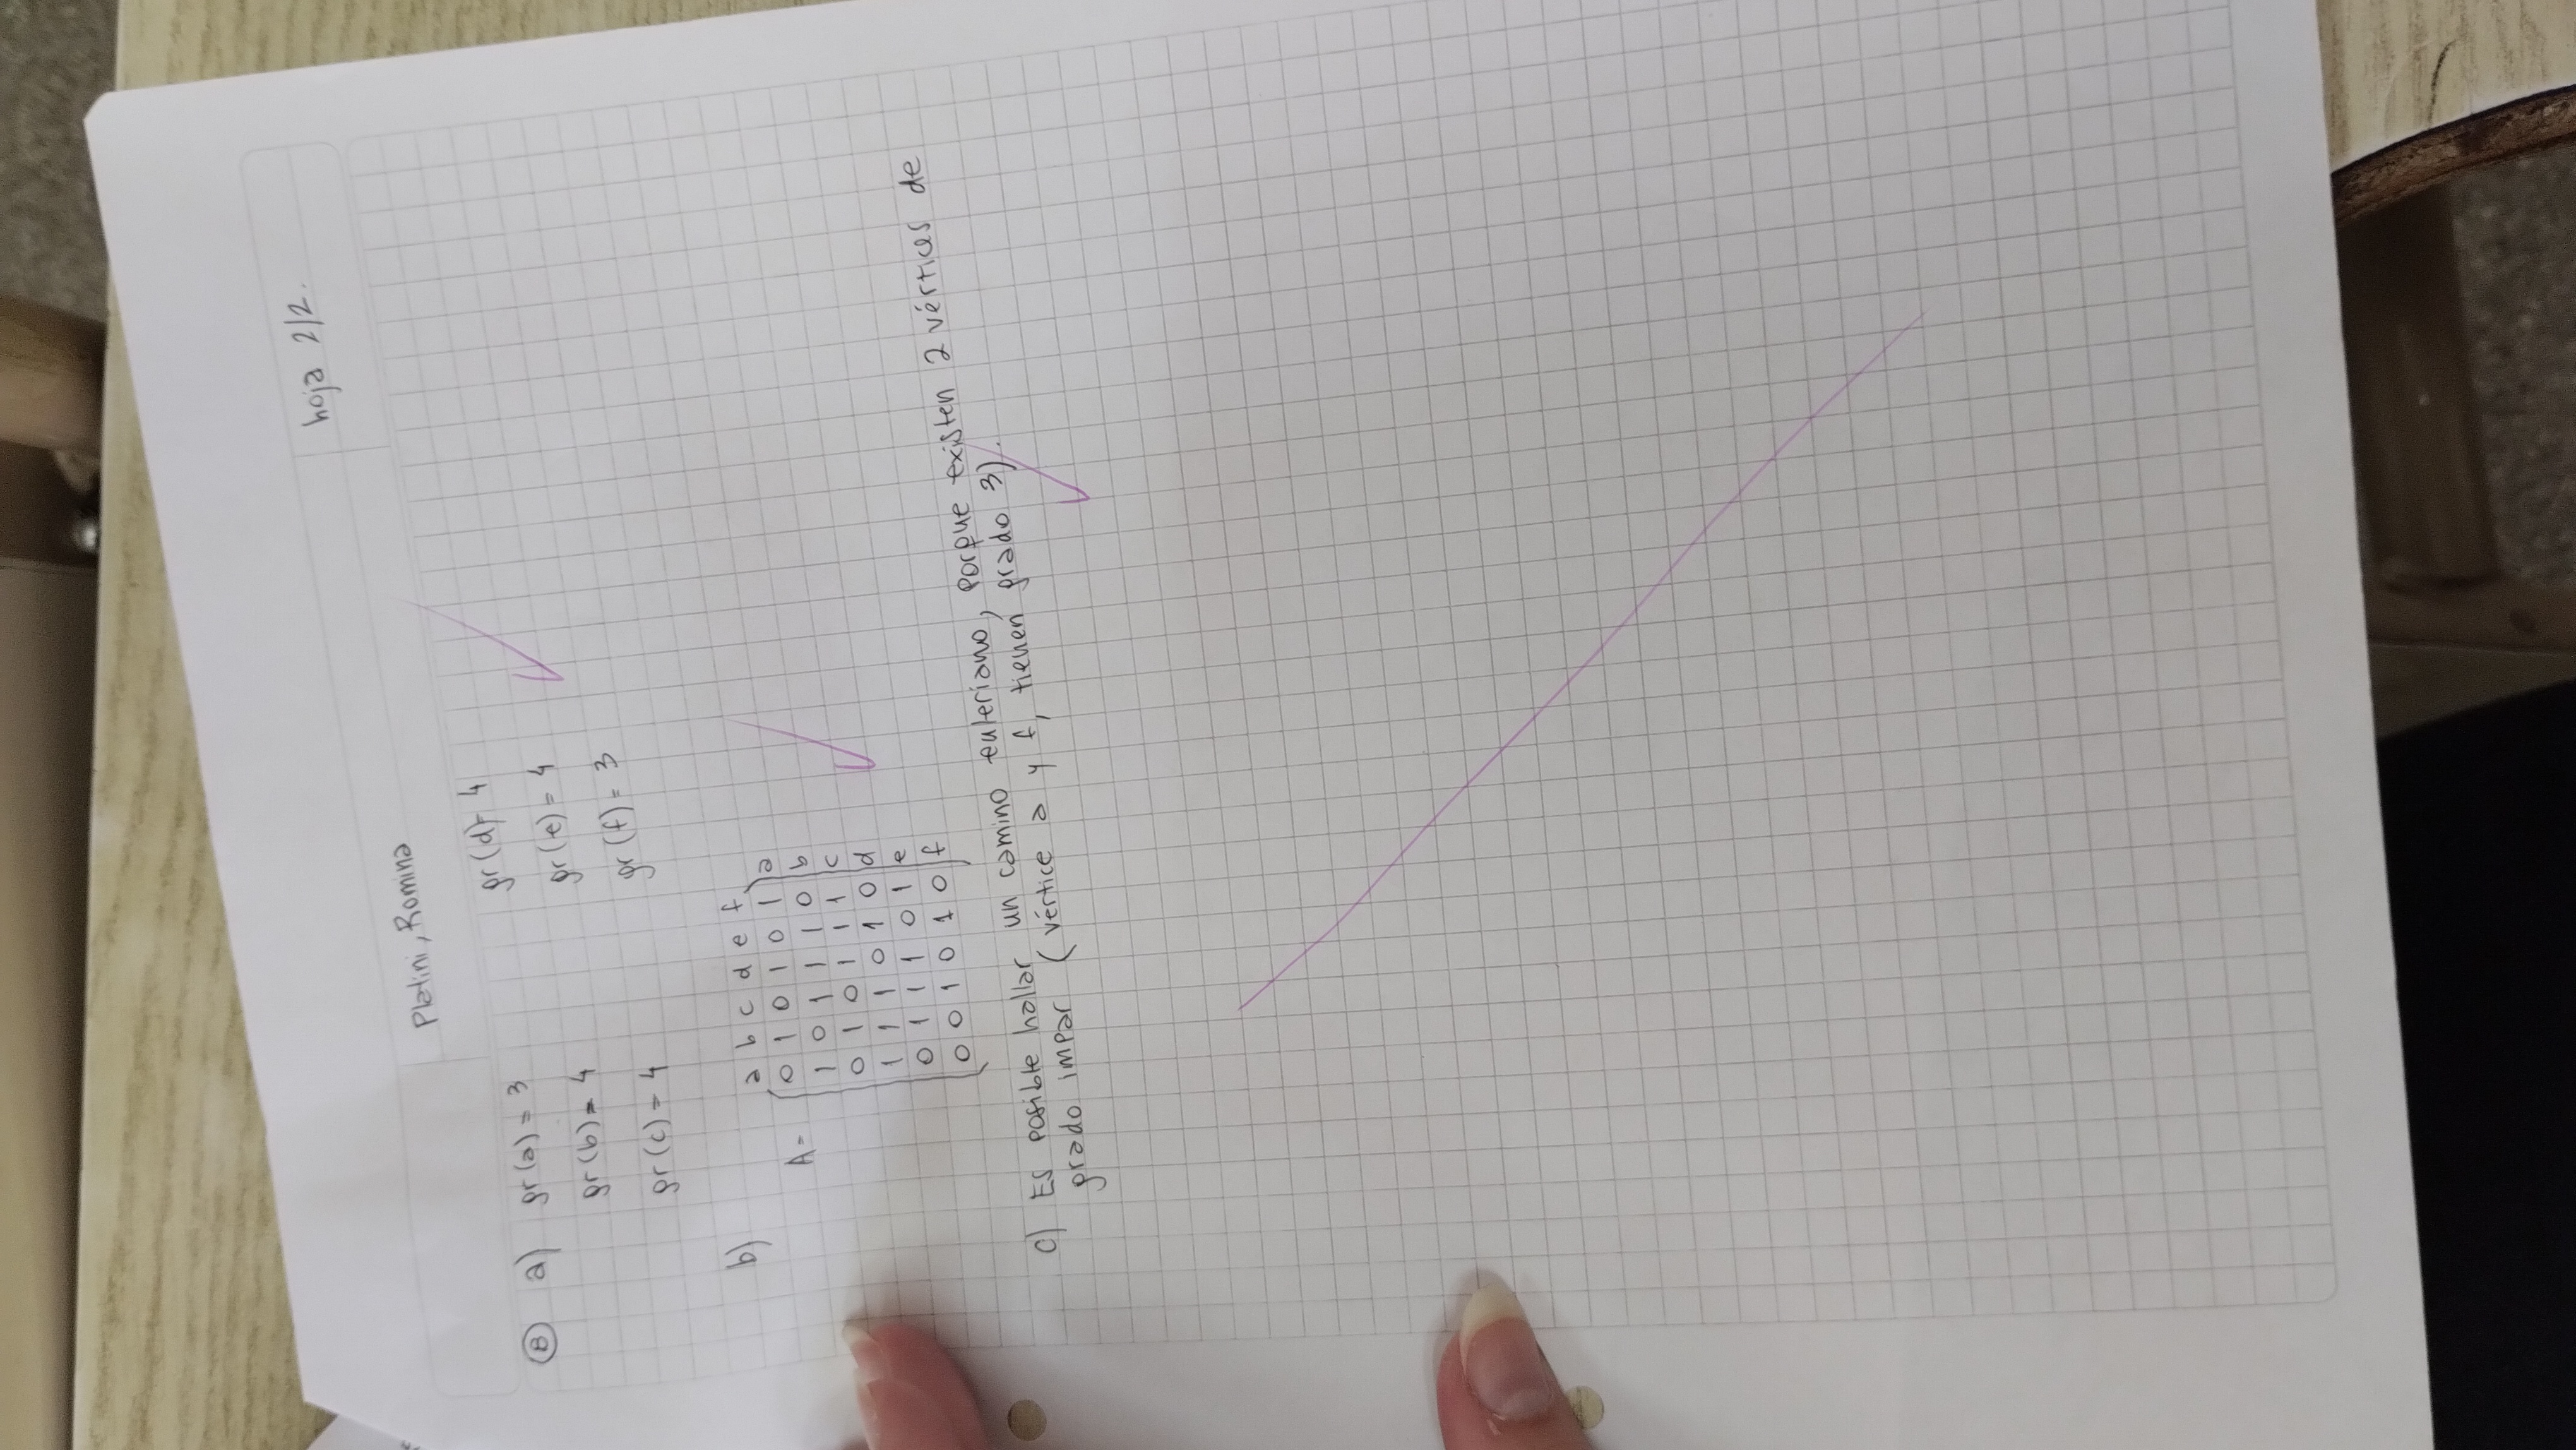 hoja 2/2.
Platini, Romina
8 a) gr(a) = 3 gr(d) = 4
gr(b) = 4 gr(e) = 4
gr(c) = 4 gr(f) = 3
b)
a b c d e f
A = 0 1 0 1 0 1 a
1 0 1 1 1 0 b
0 1 0 1 1 1 c
1 1 1 0 1 0 d
0 1 1 1 0 1 e
0 0 1 0 1 0 f
c) Es posible hallar un camino euleriano, porque existen 2 vértices de
grado impar (vértice a y f, tienen grado 3).